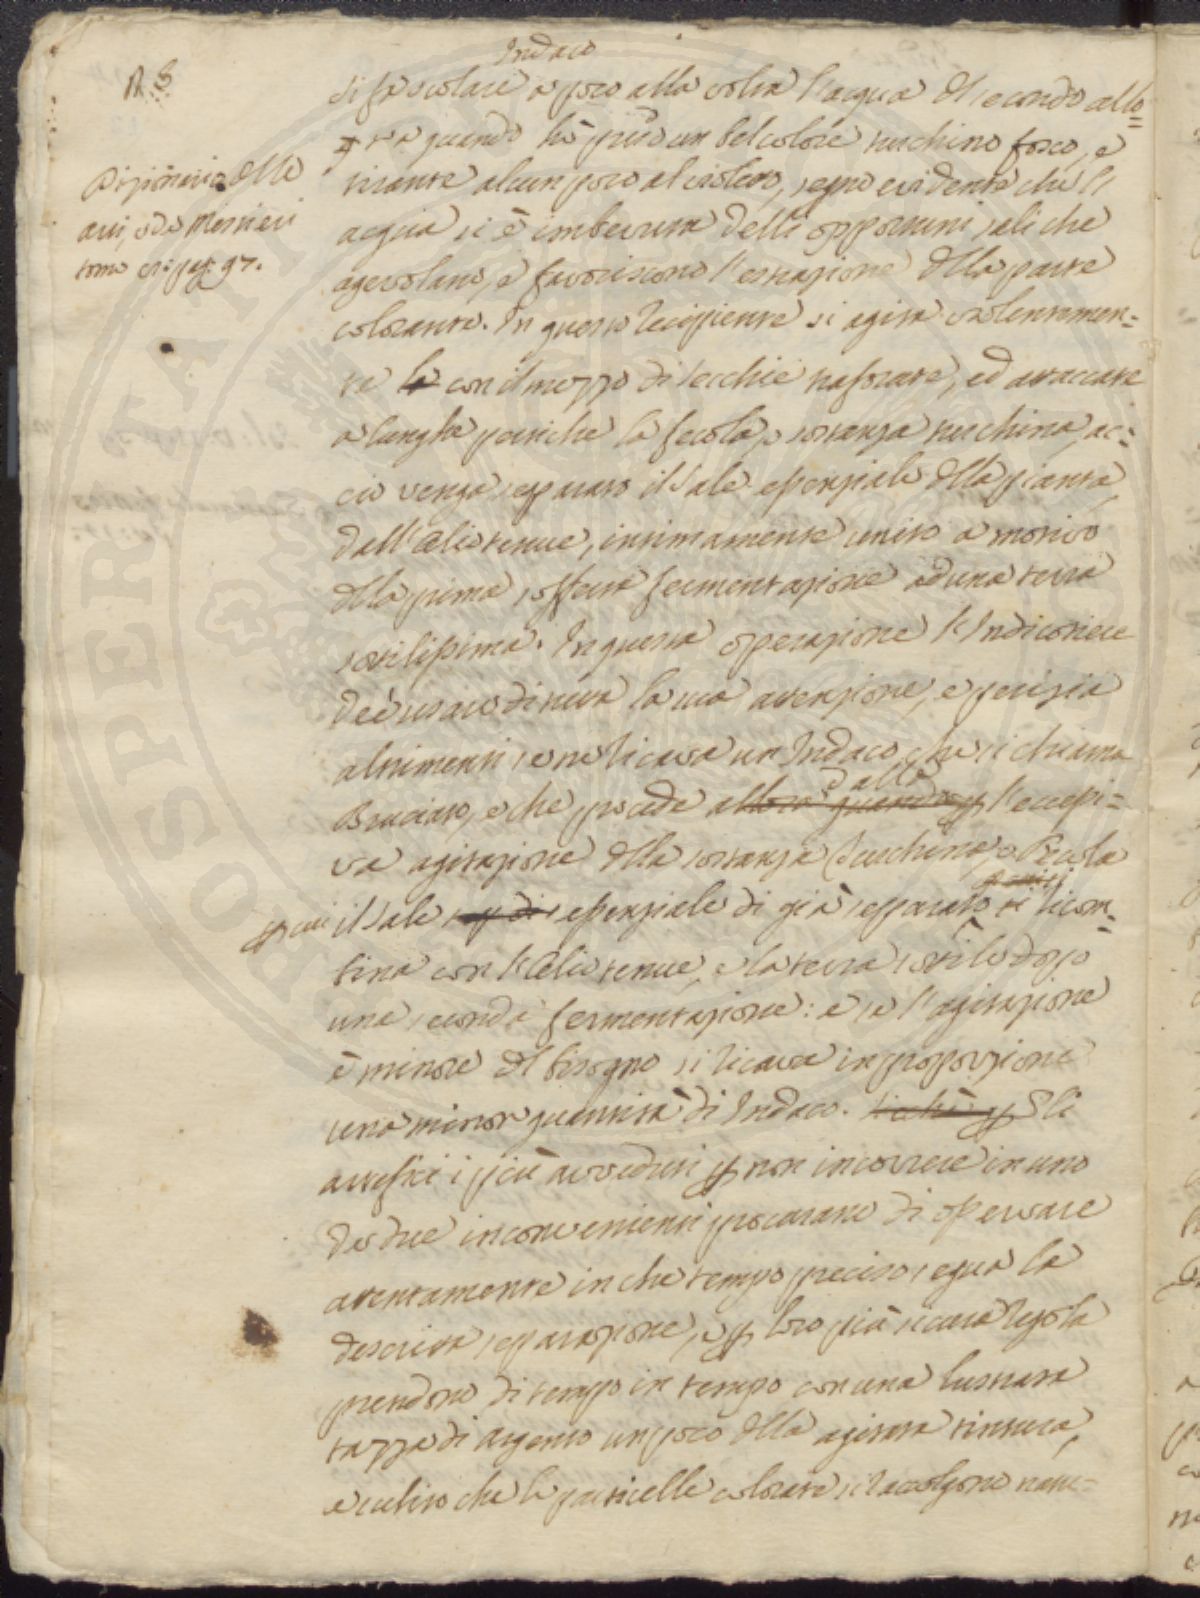 Indaco
N. 8
si fà scolare a poco alla volta l'acqua del secondo allo=
ra quando hà preso un bel colore turchino fosco, e
Dizionario delle
arti, e de Mestieri
tomo pag. 97.
tirante alcun poco al violetto, segno evidente che l'
acqua si è imbevuta delli opportuni sali che
agevolano, e favoriscono l'estrazione della parte
colorante. In questo Recipiente si agita violentemen=
te la con il mezzo di secchie traforate, ed attaccate
a lunghe pertiche la fecola, o sostanza turchina, ac=
ciò venga separato il Sale essenziale della pianta,
dall'Olio tenue, intimamente unito a motivo
della prima sofferta fermentazione ad una terra
sottilissima. In questa operazione l'Indicotiere
deè usare di tutta la sua attenzione, e perizia
altrimenti se ne ricava un Indaco, che si chiama
dalla
Bruciato, e che procede allora quando per l'eccessi=
va agitazione della sostanza Turchina, o Fecola
per cui il Sale essenziale di già separato si ricom=
bina con l'Olio tenue, e la terra sottile dopo
una seconda fermentazione: e se l'agitazione
è minore del bisogno si ricava in proporzione
una minor quantità di Indaco. Gli
artefici i più avveduti per non incorrere in uno
de due inconvenienti procurano di osservare
attentamente in che tempo preciso segua la
descritta separazione, e per loro più sicura regola
prendono di tempo in tempo con una lustrata
tazza di argento un poco della agitata tintura,
e subito che le particelle colorate si raccolgono